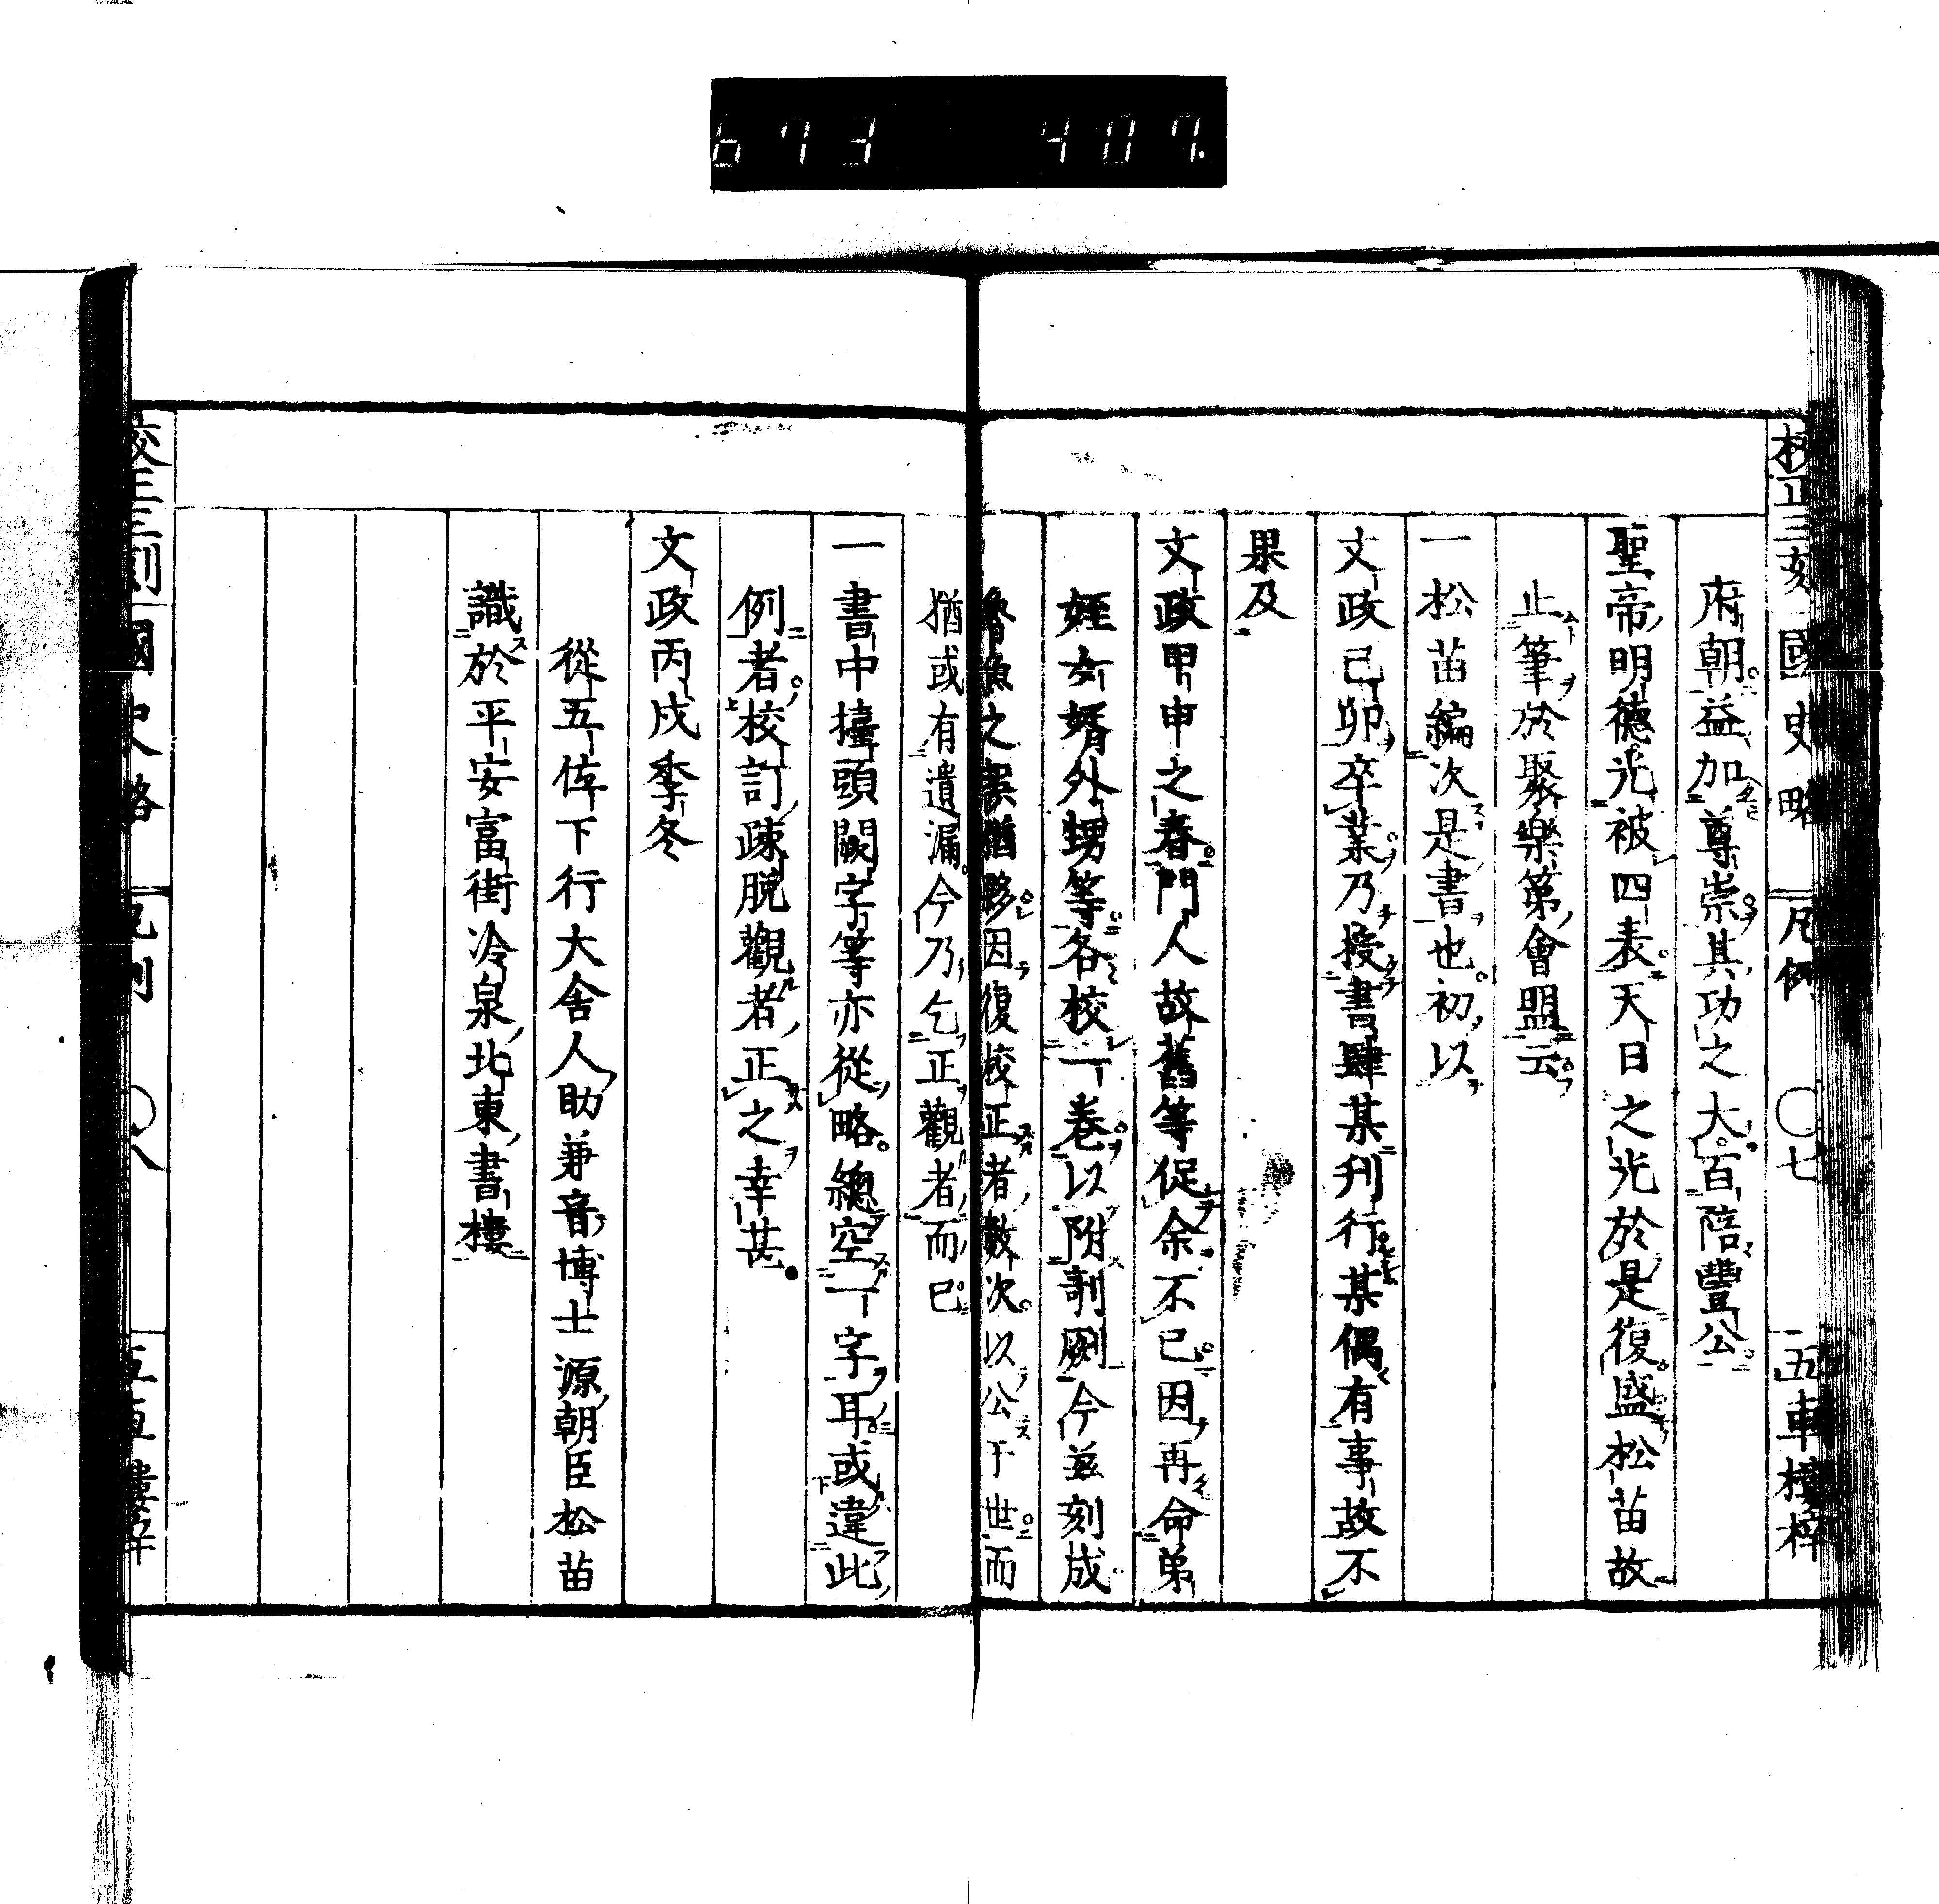 673 407
校正三刻國史略 凡例 〇七 五車樓梓
府朝益加尊崇其功之大百陪豐公
聖帝明德光被四表天日之光於是復盛松苗故
止筆於聚樂第會盟云
一松苗編次是書也初以
文政己卯卒業乃授書肆某刊行某偶有事故不
果及
文政甲申之春門人故舊等促余不已因再命弟
姪女婿外甥等各校一卷以附剞劂今茲刻成
魯魚之誤猶夥因復校正者數次以公于世而
猶或有遺漏今乃乞正觀者而已
一書中擡頭闕字等亦從略總空一字耳或違此
例者校訂疎脫觀者正之幸甚
文政丙戌季冬
從五位下行大舍人助兼音博士源朝臣松苗
識於平安富街冷泉北東書樓
校正三刻國史略 凡例 〇八 五車樓梓